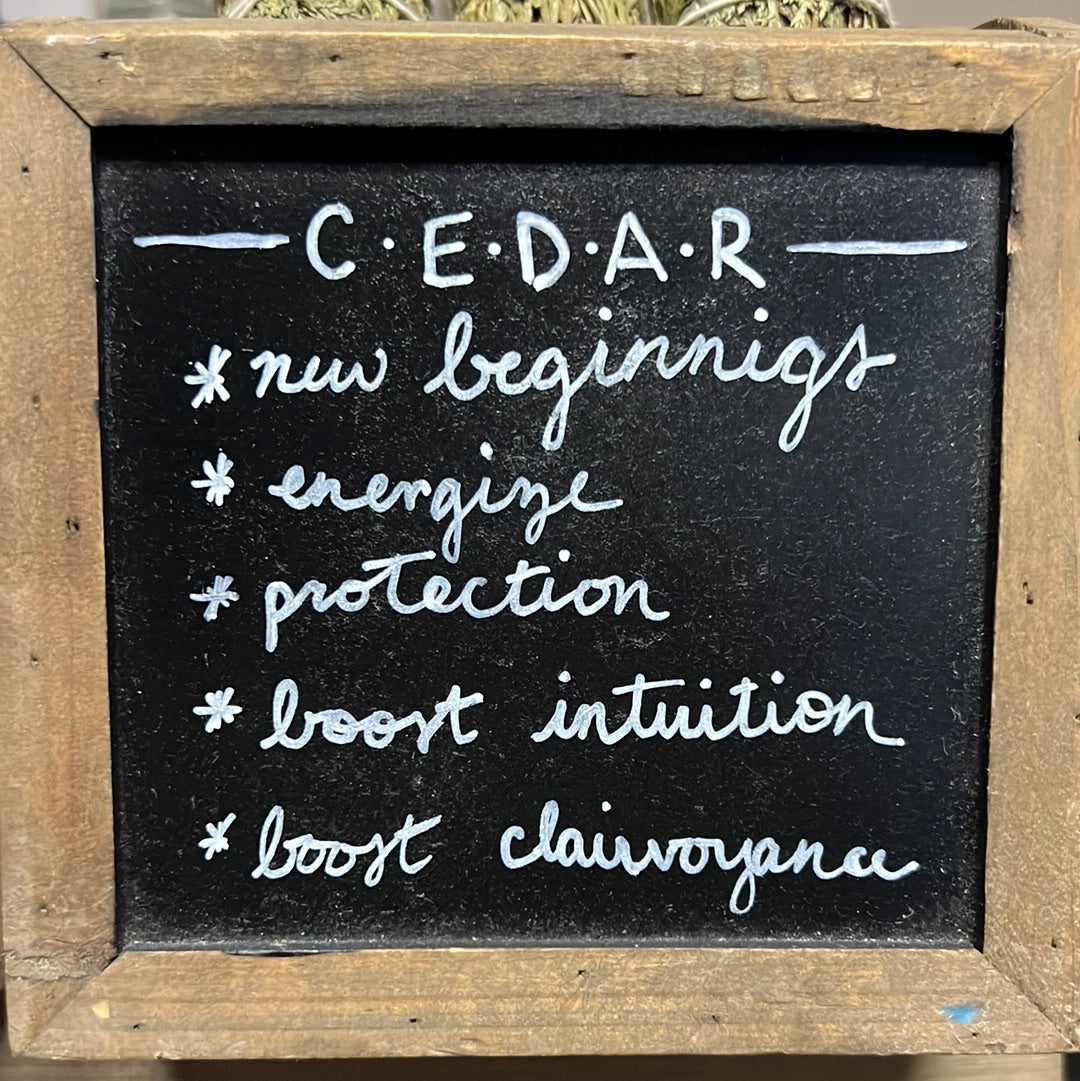 C·E·D·A·R
* new beginnigs
* energize
* protection
* boost intuition
* boost clairvoyance